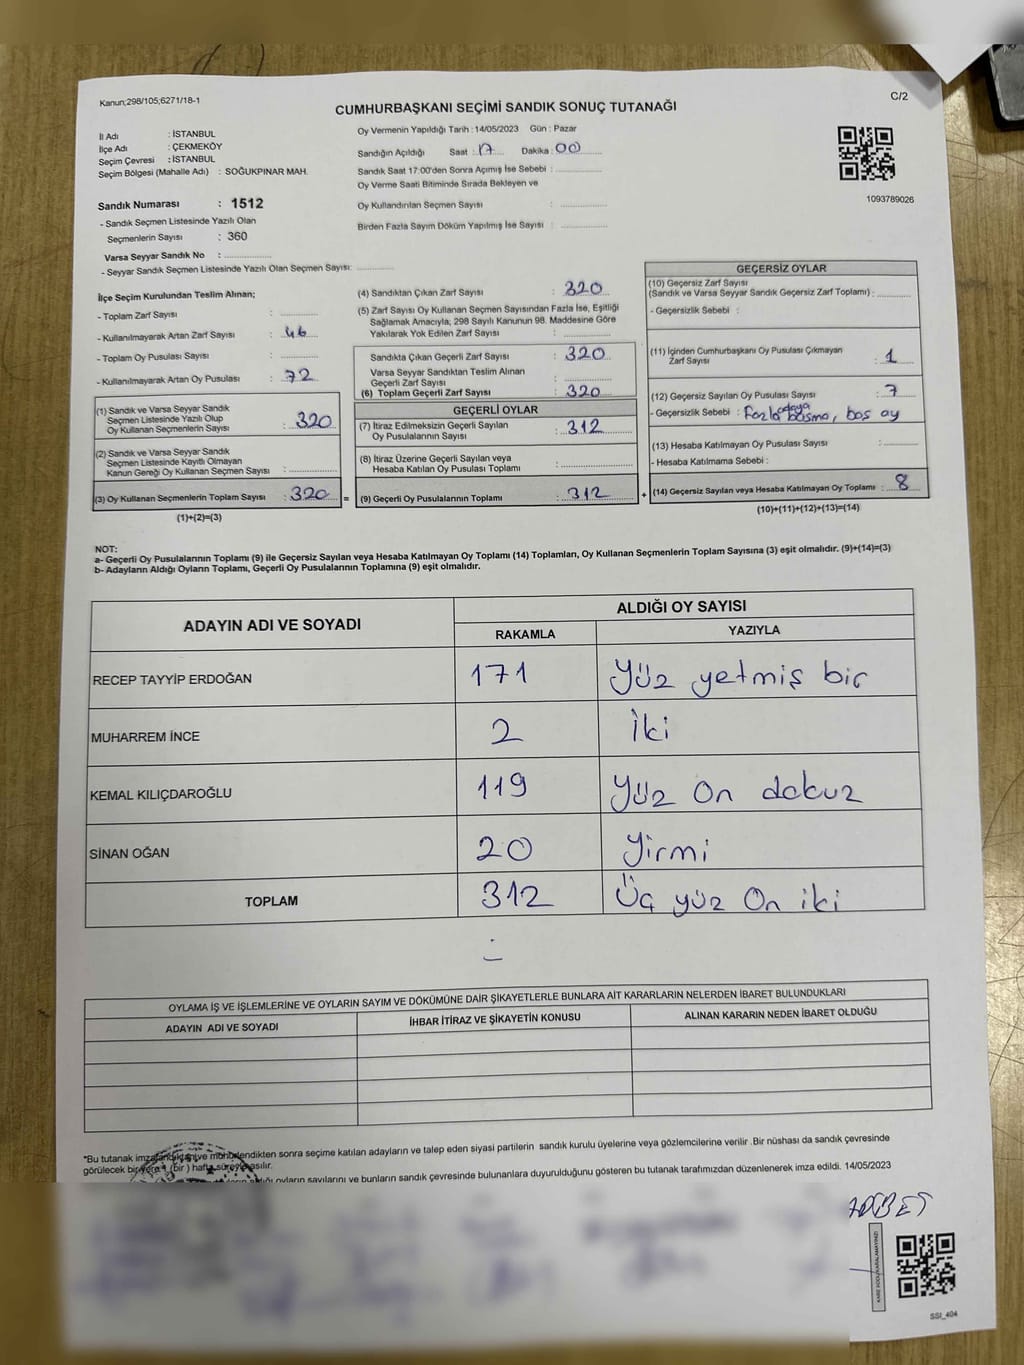 Kanun;298/105;6271/18-1
C/2
CUMHURBAŞKANI SEÇİMİ SANDIK SONUÇ TUTANAĞI
İl Adı : İSTANBUL
İlçe Adı : ÇEKMEKÖY
Seçim Çevresi : İSTANBUL
Seçim Bölgesi (Mahalle Adı) : SOĞUKPINAR MAH.
Sandık Numarası : 1512
- Sandık Seçmen Listesinde Yazılı Olan
Seçmenlerin Sayısı : 360
Varsa Seyyar Sandık No : ..............
- Seyyar Sandık Seçmen Listesinde Yazılı Olan Seçmen Sayısı: ............
Oy Vermenin Yapıldığı Tarih : 14/05/2023 Gün : Pazar
Sandığın Açıldığı Saat : 17 Dakika : 00
Sandık Saat 17:00'den Sonra Açımış İse Sebebi : ..............
Oy Verme Saati Bitiminde Sırada Bekleyen ve
Oy Kullandırılan Seçmen Sayısı : ..............
Birden Fazla Sayım Döküm Yapılmış İse Sayısı : ..............
1093789026
İlçe Seçim Kurulundan Teslim Alınan;
- Toplam Zarf Sayısı : ............
- Kullanılmayarak Artan Zarf Sayısı : 46
- Toplam Oy Pusulası Sayısı : ............
- Kullanılmayarak Artan Oy Pusulası : 72
(1) Sandık ve Varsa Seyyar Sandık
Seçmen Listesinde Yazılı Olup
Oy Kullanan Seçmenlerin Sayısı : 320
(2) Sandık ve Varsa Seyyar Sandık
Seçmen Listesinde Kayıtlı Olmayan
Kanun Gereği Oy Kullanan Seçmen Sayısı : ............
(3) Oy Kullanan Seçmenlerin Toplam Sayısı : 320 =
(1)+(2)=(3)
(4) Sandıktan Çıkan Zarf Sayısı : 320
(5) Zarf Sayısı Oy Kullanan Seçmen Sayısından Fazla İse, Eşitliği
Sağlamak Amacıyla, 298 Sayılı Kanunun 98. Maddesine Göre
Yakılarak Yok Edilen Zarf Sayısı : ............
Sandıkta Çıkan Geçerli Zarf Sayısı : 320
Varsa Seyyar Sandıktan Teslim Alınan
Geçerli Zarf Sayısı : ............
(6) Toplam Geçerli Zarf Sayısı : 320
GEÇERLİ OYLAR
(7) İtiraz Edilmeksizin Geçerli Sayılan
Oy Pusulalarının Sayısı : 312
(8) İtiraz Üzerine Geçerli Sayılan veya
Hesaba Katılan Oy Pusulası Toplamı : ............
(9) Geçerli Oy Pusulalarının Toplamı : 312 +
GEÇERSİZ OYLAR
(10) Geçersiz Zarf Sayısı
(Sandık ve Varsa Seyyar Sandık Geçersiz Zarf Toplamı) : ............
- Geçersizlik Sebebi :
(11) İçinden Cumhurbaşkanı Oy Pusulası Çıkmayan
Zarf Sayısı : 1
(12) Geçersiz Sayılan Oy Pusulası Sayısı : 7
- Geçersizlik Sebebi : Fazla adaya basma, boş oy
(13) Hesaba Katılmayan Oy Pusulası Sayısı : ............
- Hesaba Katılmama Sebebi :
(14) Geçersiz Sayılan veya Hesaba Katılmayan Oy Toplamı : 8
(10)+(11)+(12)+(13)=(14)
NOT:
a- Geçerli Oy Pusulalarının Toplamı (9) ile Geçersiz Sayılan veya Hesaba Katılmayan Oy Toplamı (14) Toplamları, Oy Kullanan Seçmenlerin Toplam Sayısına (3) eşit olmalıdır. (9)+(14)=(3)
b- Adayların Aldığı Oyların Toplamı, Geçerli Oy Pusulalarının Toplamına (9) eşit olmalıdır.
ADAYIN ADI VE SOYADI ALDIĞI OY SAYISI
RAKAMLA YAZIYLA
RECEP TAYYİP ERDOĞAN 171 Yüz yetmiş bir
MUHARREM İNCE 2 İki
KEMAL KILIÇDAROĞLU 119 Yüz On dokuz
SİNAN OĞAN 20 Yirmi
TOPLAM 312 Üç yüz On iki
OYLAMA İŞ VE İŞLEMLERİNE VE OYLARIN SAYIM VE DÖKÜMÜNE DAİR ŞİKAYETLERLE BUNLARA AİT KARARLARIN NELERDEN İBARET BULUNDUKLARI
ADAYIN ADI VE SOYADI İHBAR İTİRAZ VE ŞİKAYETİN KONUSU ALINAN KARARIN NEDEN İBARET OLDUĞU
*Bu tutanak imzalandıktan ve mühürlendikten sonra seçime katılan adayların ve talep eden siyasi partilerin sandık kurulu üyelerine veya gözlemcilerine verilir .Bir nüshası da sandık çevresinde
görülecek bir yere 1 (bir ) hafta süreyle asılır.
oyların sayılarını ve bunların sandık çevresinde bulunanlara duyurulduğunu gösteren bu tutanak tarafımızdan düzenlenerek imza edildi. 14/05/2023
KARE KODU KARALAMAYINIZ!
SSI_404